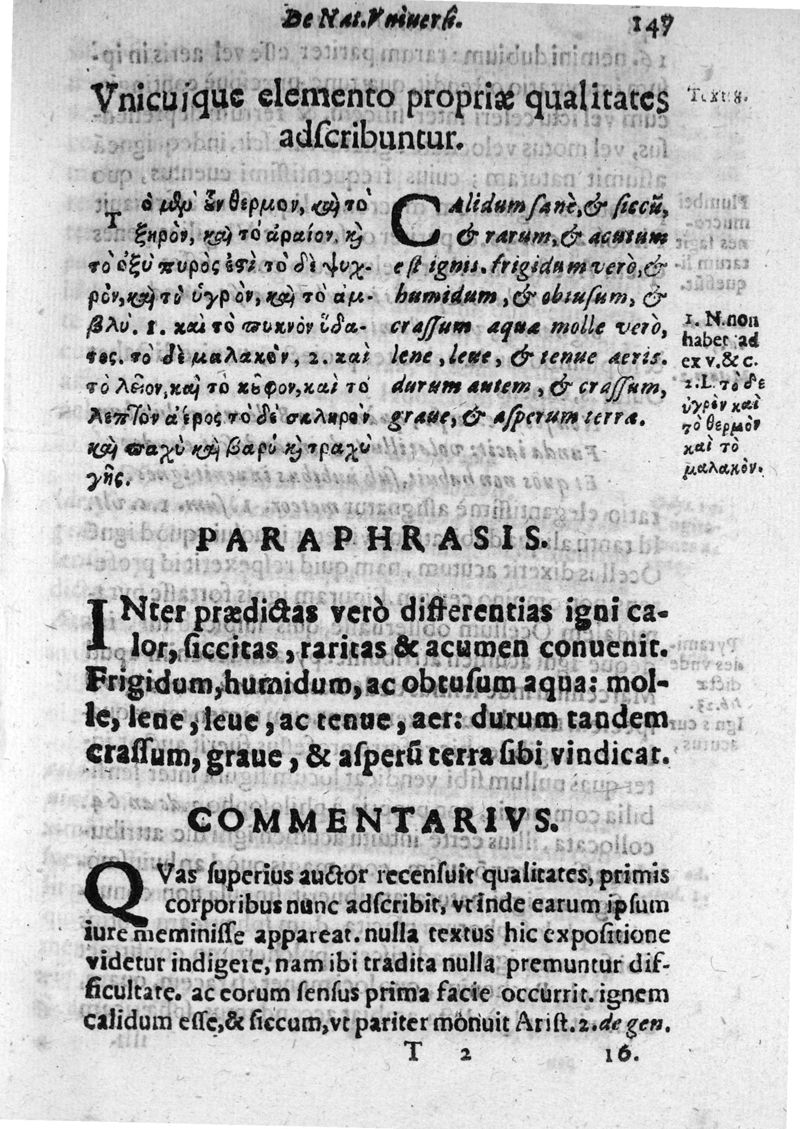 De Nat. Vniuersi.
147
Vnicuique elemento propriæ qualitates
adſcribuntur.
Text 8.
Τὸ μὲν ὂν θερμον, καὶ το
ξηρὸν, καὶ τὸ ἀραίον, κὴ
τὸ ὀξὺ πυρὸς ἐστὶ τὸ δὲ ψυχ-
ρὸν, καὶ τὸ ὑγρὸν, καὶ τὸ ἀμ-
βλύ. 1. καὶ τὸ πυκνὸν ὕδα-
τος. τὸ δὲ μαλακὸν, 2. καὶ
τὸ λεῖον, καὶ τὸ κȣ͂φον, καὶ τὸ
λεπτὸν ἀέρος τὸ δὲ σκληρὸν
καὶ παχὺ καὶ βαρὺ κὴ τραχὺ
γῆς.
CAlidum ſanè, & ſiccũ,
& rarum, & acutum
eſt ignis. frigidum verò, &
humidum, & obtuſum, &
craſſum aquæ molle verò,
lene, leue, & tenue aeris.
durum autem, & craſſum,
graue, & aſperum terræ.
1. N. non
habet ad
ex v. & c.
2. L. τὸ δὲ
ὑγρὸν καὶ
τὸ θερμὸν
καὶ τὸ
μαλακὸν.
PARAPHRASIS.
INter prædictas verò differentias igni ca-
lor, ſiccitas, raritas & acumen conuenit.
Frigidum, humidum, ac obtuſum aqua: mol-
le, lene, leue, ac tenue, aer: durum tandem
craſſum, graue, & aſperũ terra ſibi vindicat.
COMMENTARIVS.
QVas ſuperius auctor recenſuit qualitates, primis
corporibus nunc adſcribit, vt inde earum ipſum
iure meminiſſe appareat. nulla textus hic expoſitione
videtur indigere, nam ibi tradita nulla premuntur dif-
ficultate. ac eorum ſenſus prima facie occurrit. ignem
calidum eſſe, & ſiccum, vt pariter monuit Ariſt. 2. de gen.
T 2
16.